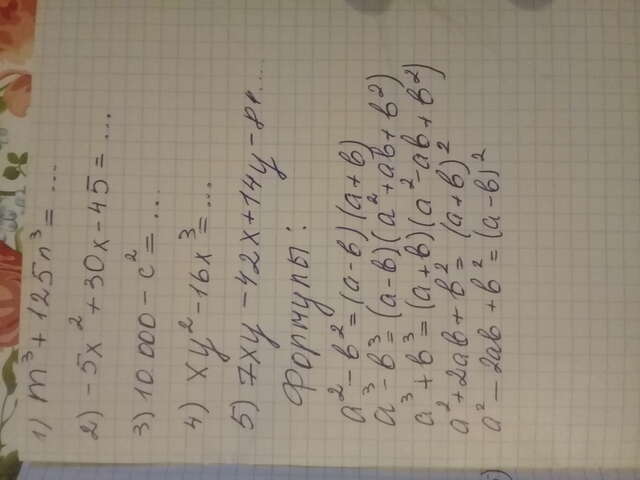 1) m³ + 125n³ = ...
2) -5x² + 30x - 45 = ...
3) 10 000 - c² = ...
4) xy² - 16x³ = ...
5) 7xy - 42x + 14y - 84...
Формулы:
a² - b² = (a - b)(a + b)
a³ - b³ = (a - b)(a² + ab + b²)
a³ + b³ = (a + b)(a² - ab + b²)
a² + 2ab + b² = (a + b)²
a² - 2ab + b² = (a - b)²